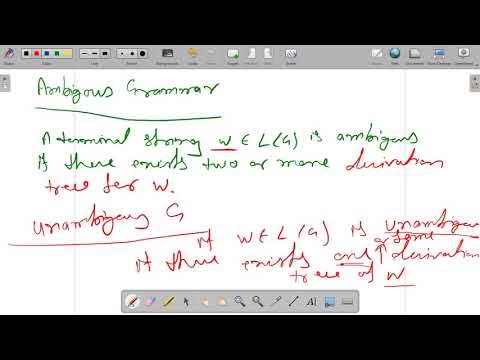 Ambigous Grammar
A terminal string w ∈ L(G) is ambigous
if there exists two or more derivation
tree for w.
unambigous G
if w ∈ L(G) is unambigous
or same
if there exists one derivation
tree of w